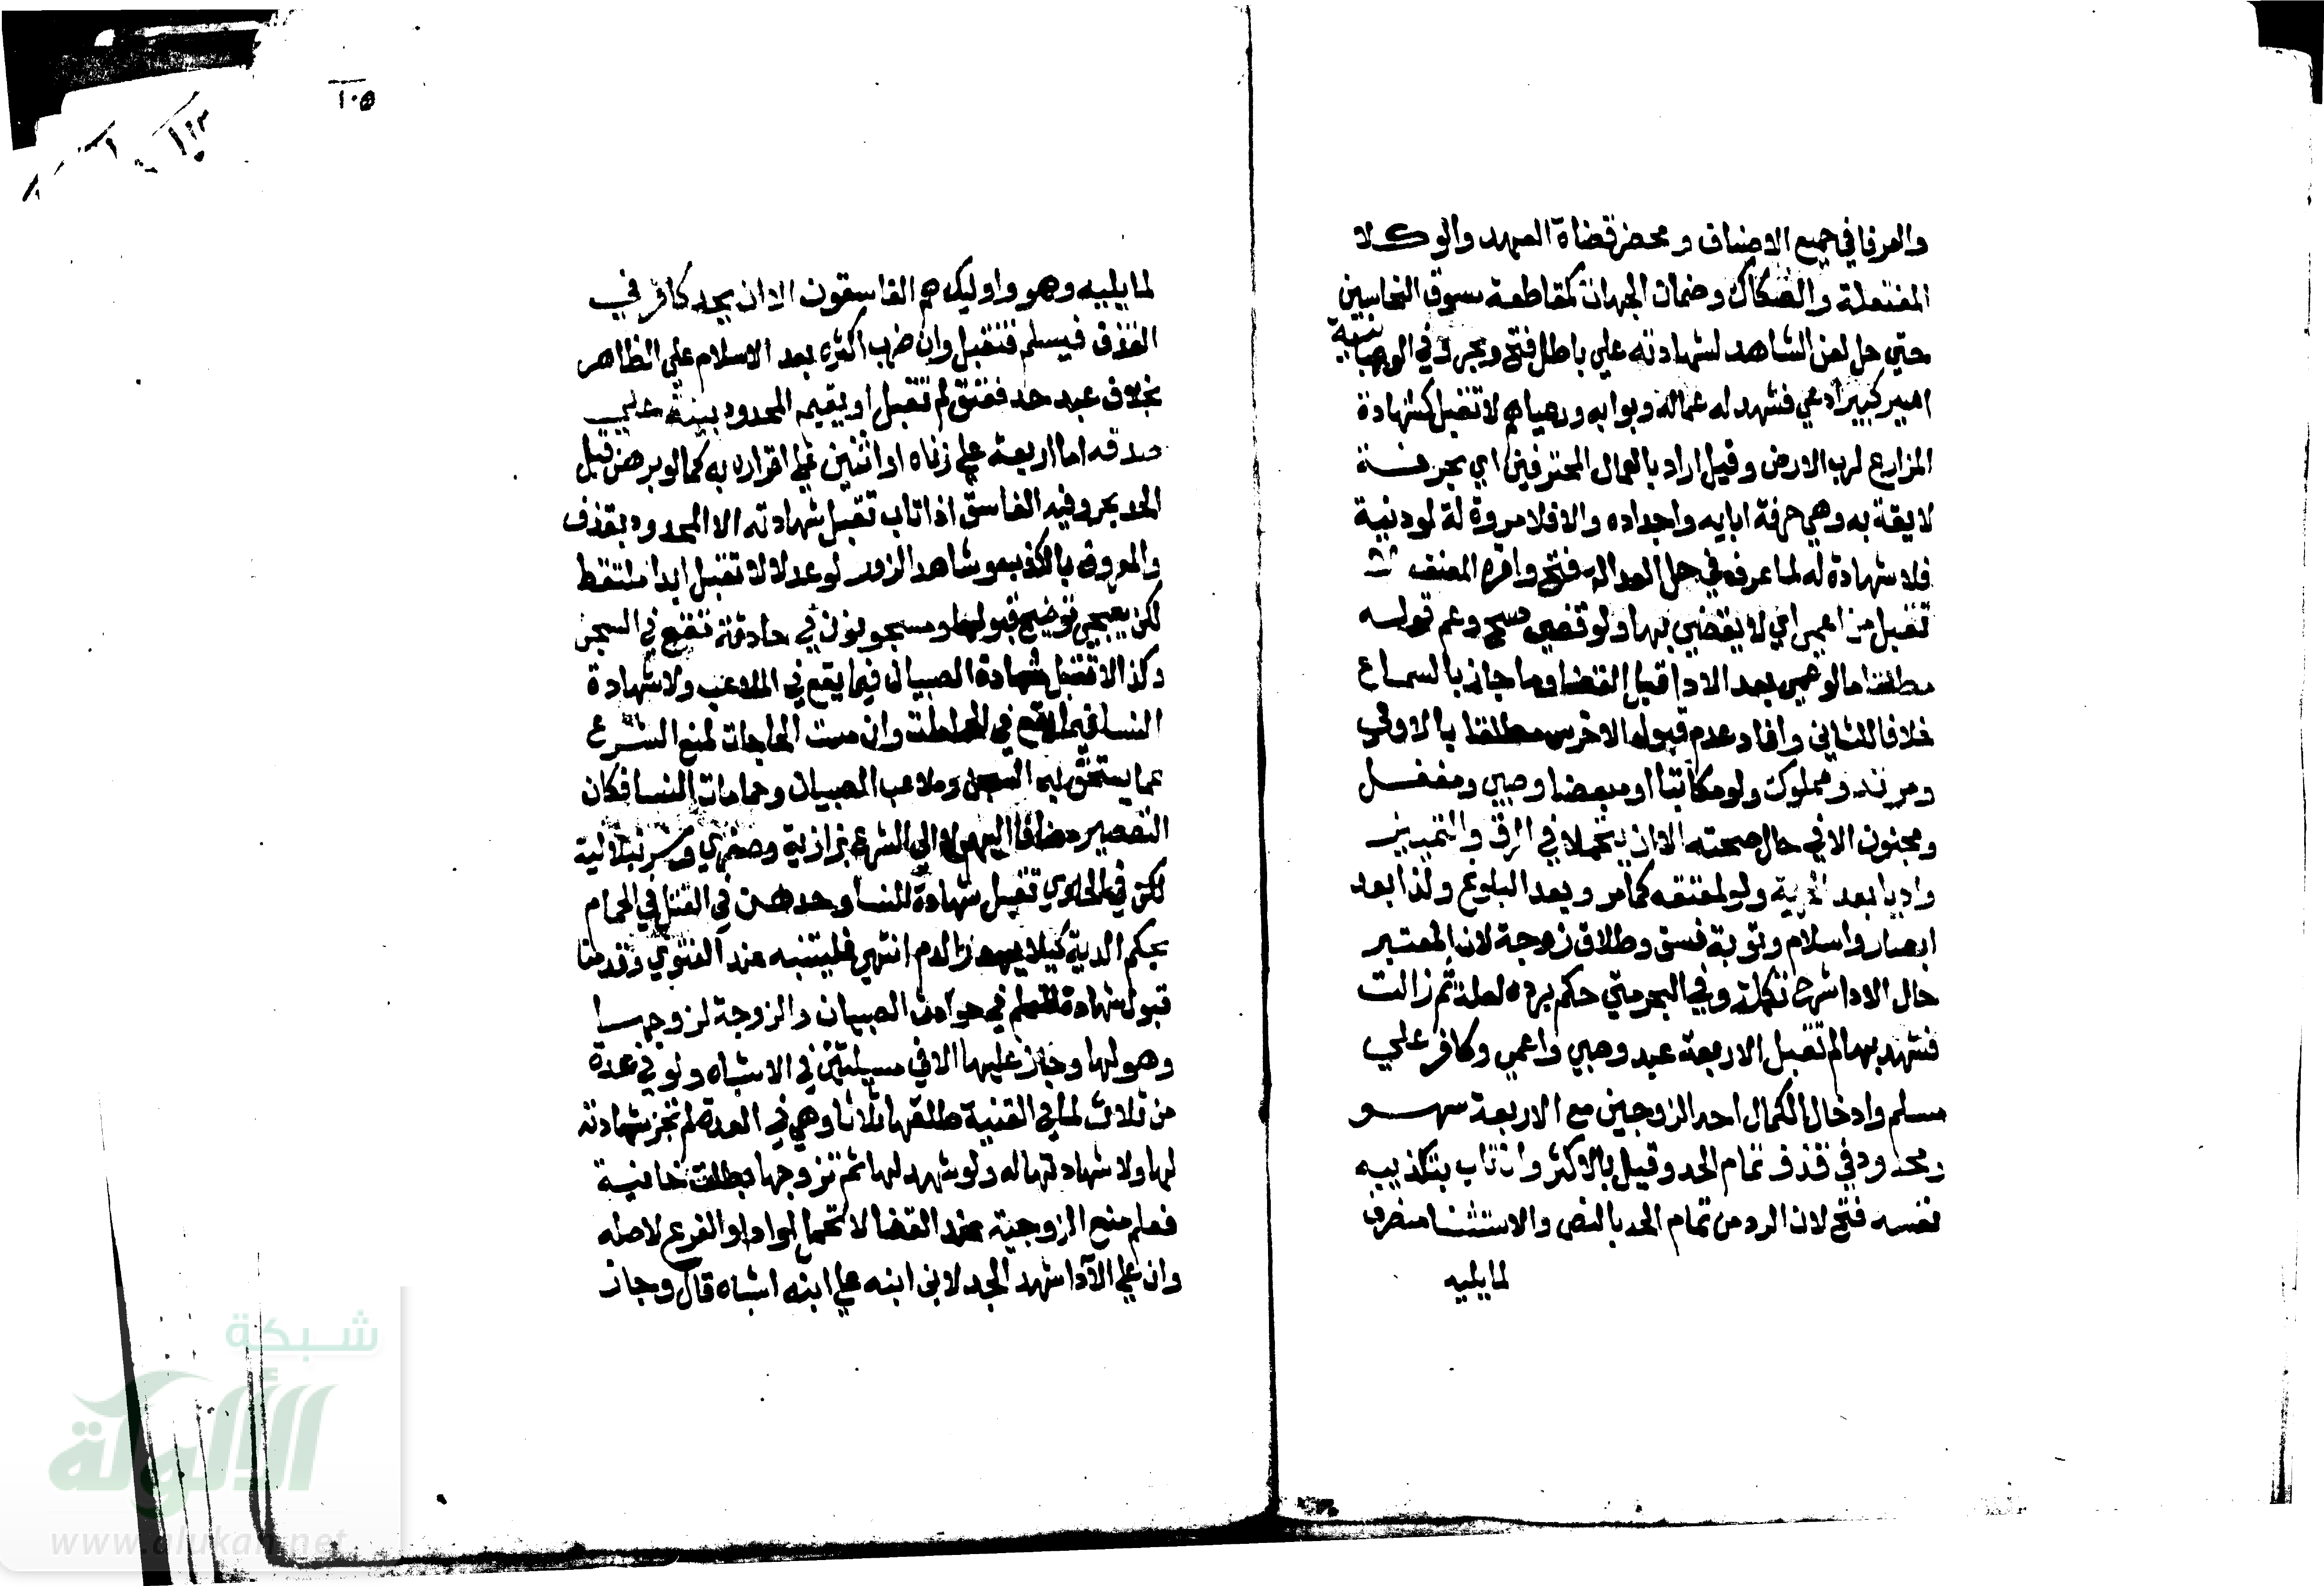 والعرفا في جميع الاصناف ومحضر قضاة العهد والوكلا
المفتعلة والصكاك وضمان الجهات كمقاطعة سوق النخاسين
حتي حل لعن الشاهد لشهادته علي باطل فتح وبحر وفي الوهبانية
امير كبير ادعي فشهد له عماله وبوابه ورعياهم لا تقبل كشهادة
المزارع لرب الارض وقيل اراد بالعمال المحترفين اي بحرفة
لايقة به وهي حرفة ابايه واجداده والا فلا مروة له لو دنية
فلا شهادة له لما عرف في حل العدالة فتح واقره المصنف
تقبل من اعمي اي لا يقضي بها ولو قضي صح وعم قوله
مطلقا ما لو عمي بعد الادا قبل القضا وما جاز بالسماع
خلافا للثاني وافاد عدم قبول الاخرس مطلقا بالاولي
ومرتد ومملوك ولو مكاتبا او مبعضا وصبي ومغفل
ومجنون الا في حال صحته الا ان يتحملا في الرق والتمييز
واديا بعد الحرية ولو لمعتقه كما مر وبعد البلوغ ولذا بعد
ابصار واسلام وتوبة فسق وطلاق زوجة لان المعتبر
حال الادا شرح تكملة وفي البحر متي حكم برده لعلة ثم زالت
فشهد بها لم تقبل الا اربعة عبد وصبي واعمي وكافر علي
مسلم وادخال الكمال احد الزوجين مع الاربعة سهو
ومحدود في قذف تمام الحد وقيل بالاكثر وان تاب بتكذيبه
نفسه فتح لان الرد من تمام الحد بالنص والاستثنا منصرف
لما يليه
١٠٥
لما يليه وهو واوليك هم الفاسقون الا ان يحد كافر في
القذف فيسلم فتقبل وان ضرب اكثره بعد الاسلام علي الظاهر
بخلاف عبد حد فعتق لم تقبل او يقيم المحدود بينة علي
صدقه اما اربعة علي زناه او اثنين علي اقراره به كما لو برهن قبل
الحد بحر وفيه الفاسق اذا تاب تقبل شهادته الا المحدود بقذف
والمعروف بالكذب وشاهد الزور لو عدلا لا تقبل ابدا ملتقط
لكن سيجي ترجيح قبولها ومسجونون في حادثة تقع في السجن
وكذا لا تقبل شهادة الصبيان فيما يقع في الملاعب ولا شهادة
النسا فيما يقع في الحمامات وان مست الحاجات لمنع الشرع
عما يستحق به السجن وملاعب الصبيان وحمامات النسا فكان
التقصير مضافا اليهم لا الي الشرع بزازية وصغري وشرنبلالية
لكن في الحاوي تقبل شهادة النسا وحدهن في القتل في الحمام
بحكم الدية كيلا يهدر الدم انتهي فليتنبه عند الفتوي وقدمنا
قبول شهادة المعلم في حوادث الصبيان والزوجة لزوجها
وهو لها وجاز عليها الا في مسيلتين في الاشباه ولو في عدة
من ثلاث لما في القنية طلقها ثلاثا وهي في العدة لم تجز شهادته
لها ولا شهادتها له ولو شهد لها ثم تزوجها بطلت خانية
فعلم منع الزوجية عند القضا لا تحمل او ادا والفرع لاصله
وان علي الآ اذا شهد الجد لابن ابنه علي ابنه اشباه قال وجاز
شبكة
الألوكة
www.alukah.net